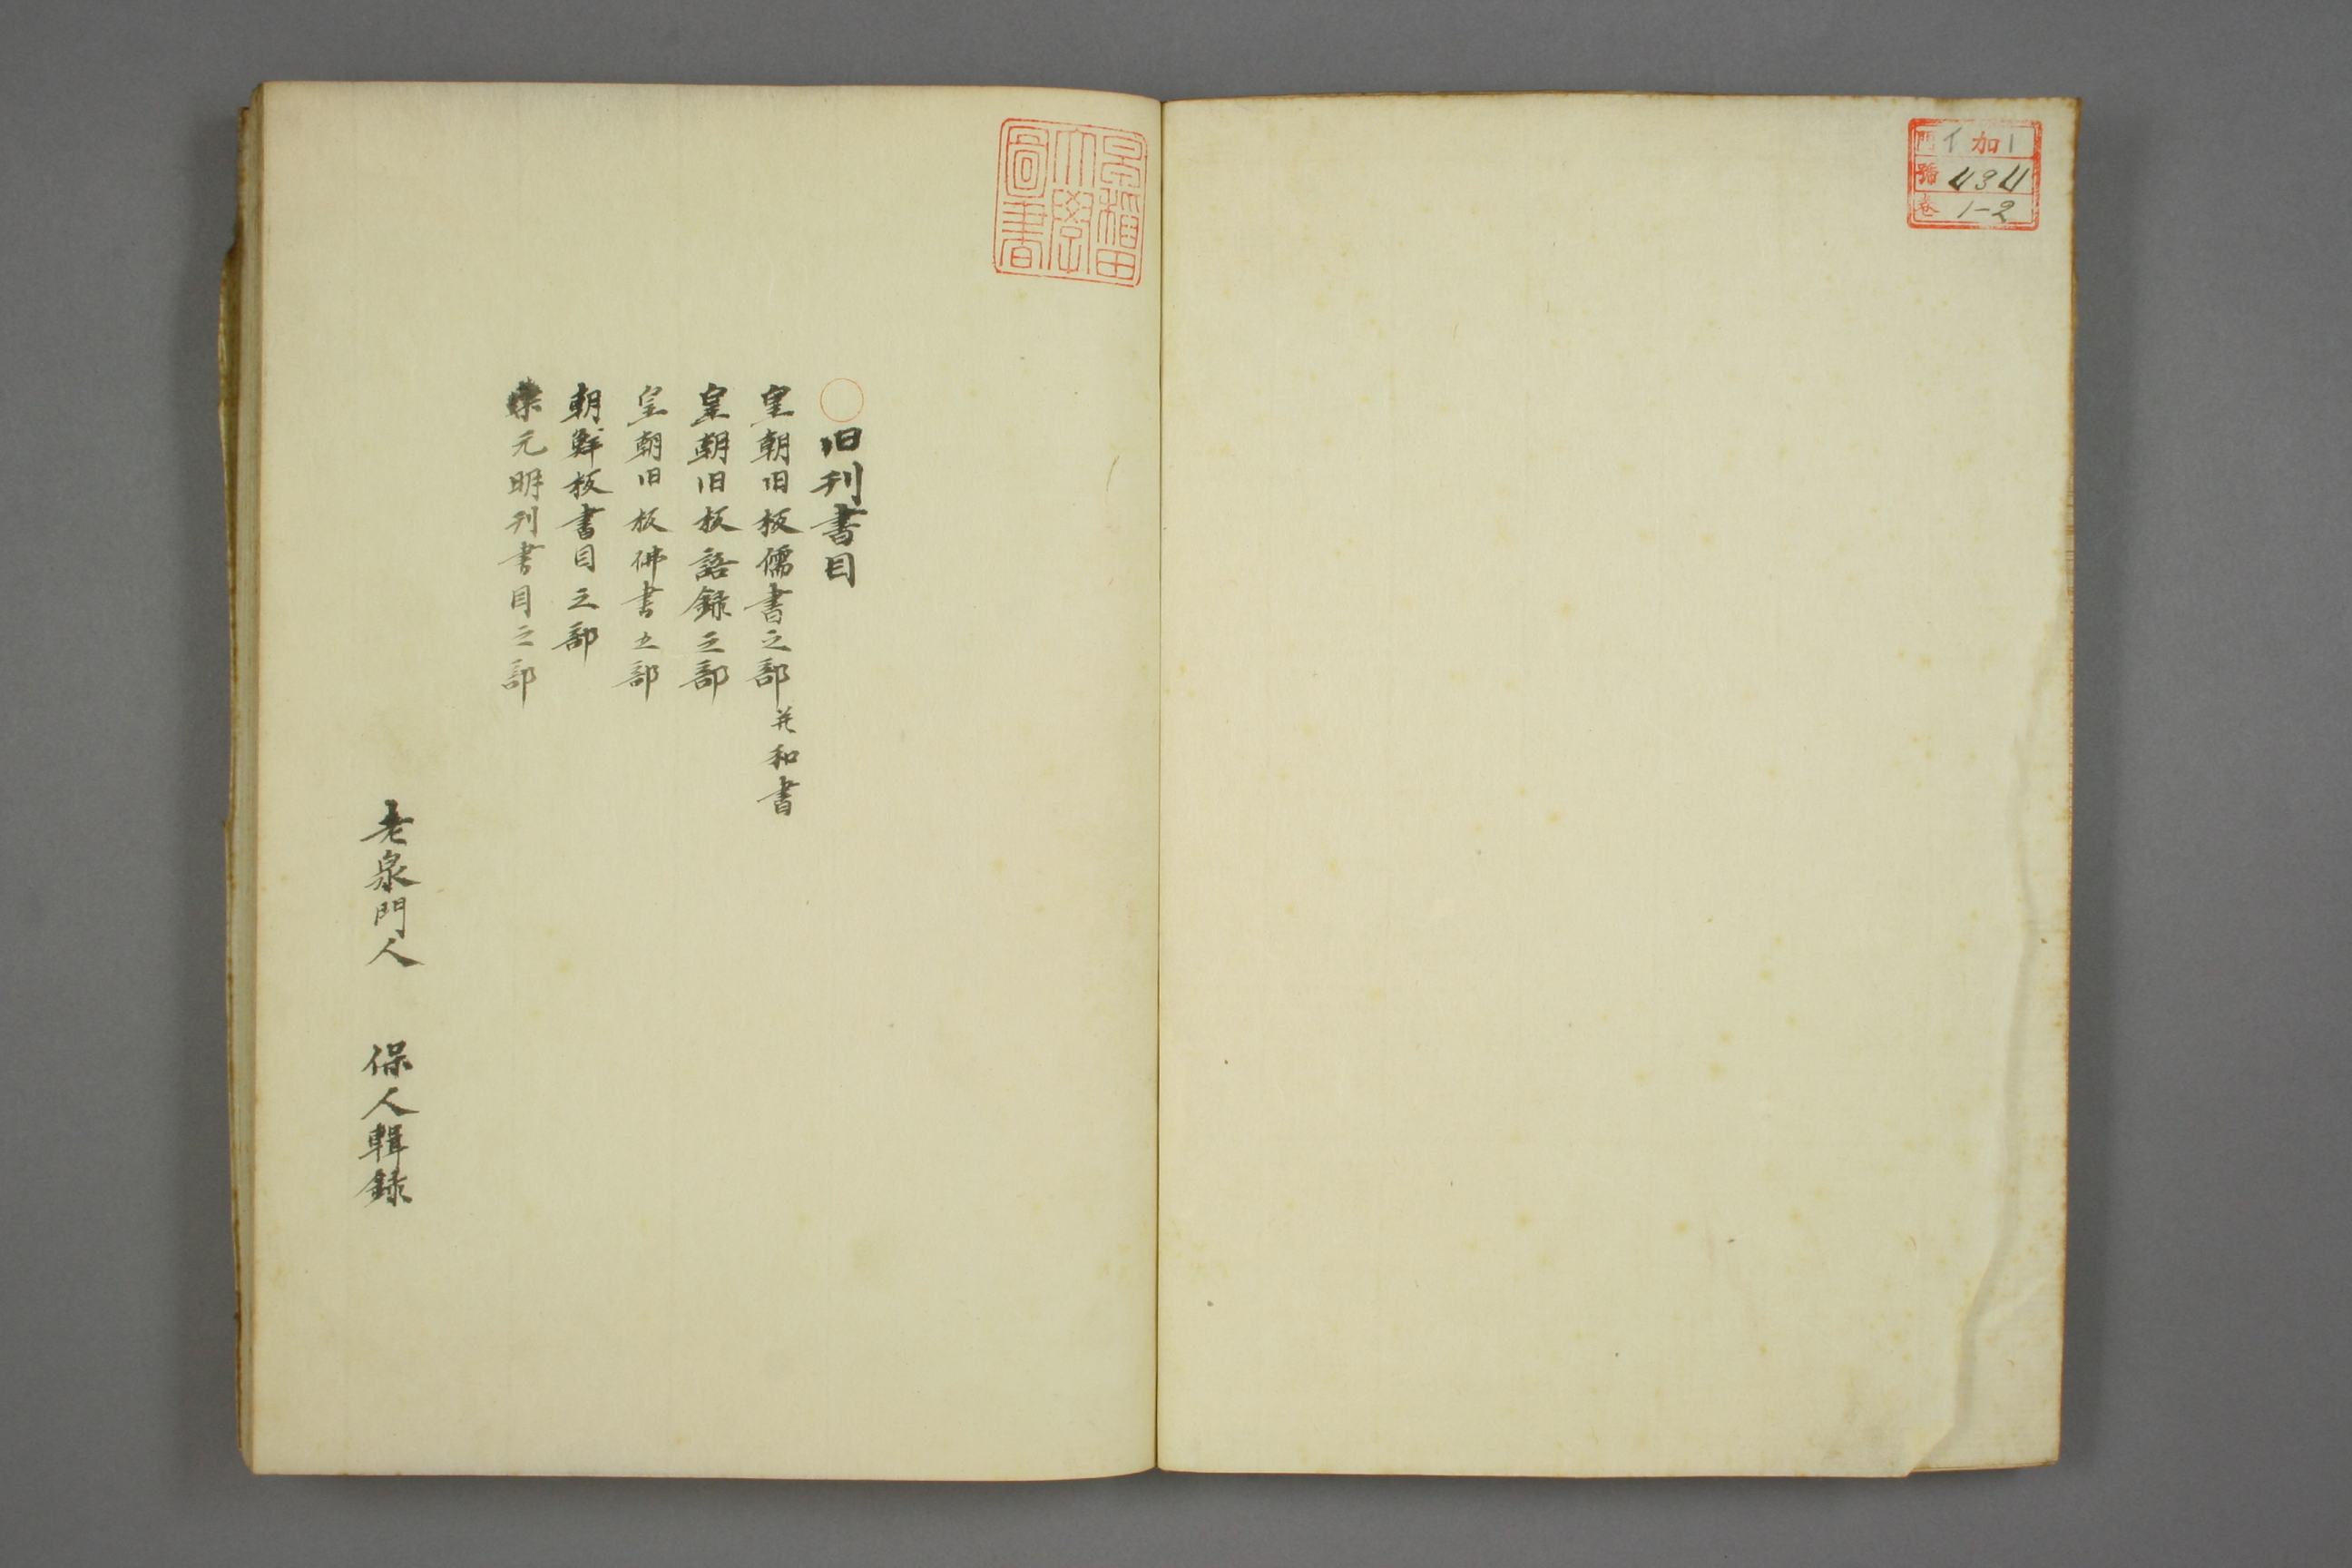 門 イ 加 1
號 434
卷 1-2
早稲田大學圖書
〇旧刊書目
皇朝旧板儒書之部 并和書
皇朝旧板語錄之部
皇朝旧板佛書之部
朝鮮板書目之部
宋元明刊書目之部
老泉門人 保人輯録